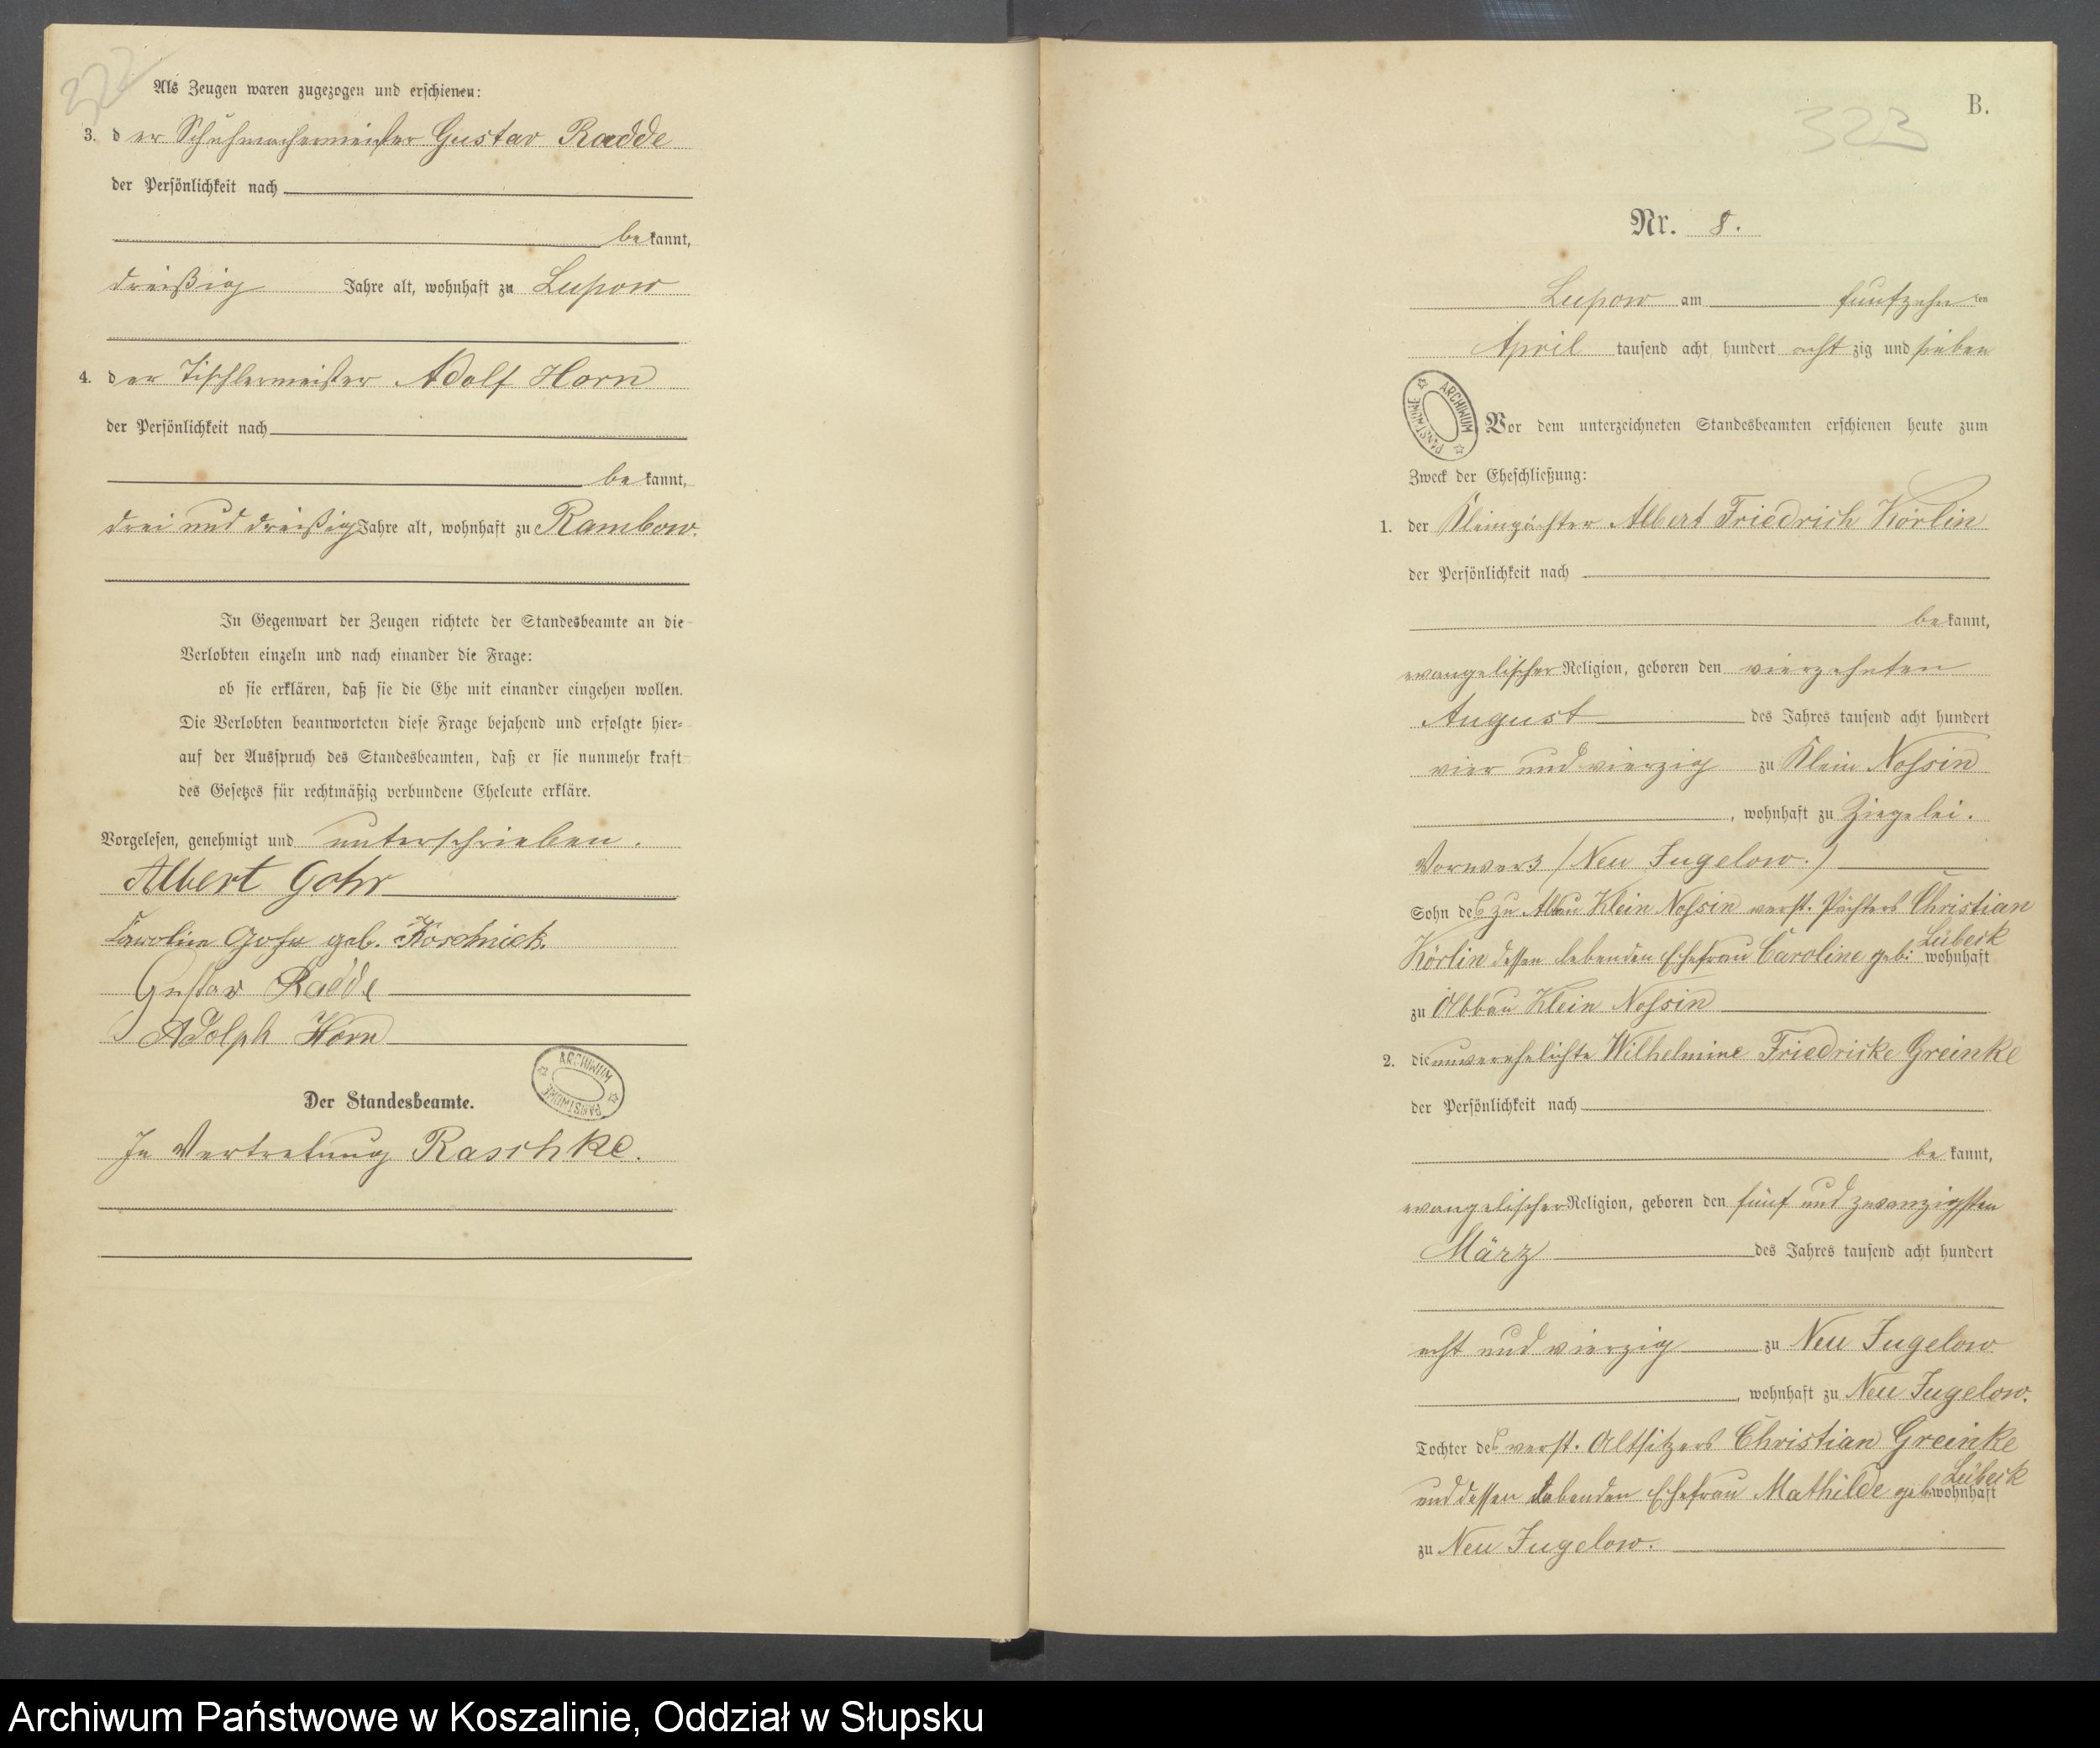 322
Als Zeugen waren zugezogen und erschienen:
3. der Schuhmachermeister Gustav Radde
der Persönlichkeit nach
bekannt,
dreißig Jahre alt, wohnhaft zu Lupow
4. der Tischlermeister Adolf Horn
der Persönlichkeit nach
bekannt,
drei und dreißig Jahre alt, wohnhaft zu Rambow.
In Gegenwart der Zeugen richtete der Standesbeamte an die
Verlobten einzeln und nach einander die Frage:
ob sie erklären, daß sie die Ehe mit einander eingehen wollen.
Die Verlobten beantworteten diese Frage bejahend und erfolgte hier-
auf der Ausspruch des Standesbeamten, daß er sie nunmehr kraft
des Gesetzes für rechtmäßig verbundene Eheleute erkläre.
Vorgelesen, genehmigt und unterschrieben.
Albert Gohr
Karoline Gohr geb. Köschnick
Gustav Radde
Adolph Horn
ARCHIWUM PAŃSTWOWE
Der Standesbeamte.
In Vertretung Raschke.
B.
323
Nr. 8.
Lupow am fünfzehnten
April tausend acht hundert achtzig und sieben
ARCHIWUM PAŃSTWOWE
Vor dem unterzeichneten Standesbeamten erschienen heute zum
Zweck der Eheschließung:
1. der Kleinpächter Albert Friedrich Körlin
der Persönlichkeit nach
bekannt,
evangelischer Religion, geboren den vierzehnten
August des Jahres tausend acht hundert
vier und vierzig zu Klein Nossin
, wohnhaft zu Ziegelei.
Vorwerk (Neu Jugelow.)
Sohn des zu Abbau Klein Nossin verst. Pächters Christian
Körlin dessen lebenden Ehefrau Caroline geb: Lübeck wohnhaft
zu Abbau Klein Nossin
2. die unverehelichte Wilhelmine Friedricke Greinke
der Persönlichkeit nach
bekannt,
evangelischer Religion, geboren den fünf und zwanzigsten
März des Jahres tausend acht hundert
acht und vierzig zu Neu Jugelow
, wohnhaft zu Neu Jugelow.
Tochter des verst. Altsitzers Christian Greinke
und dessen lebenden Ehefrau Mathilde geb Lübeck wohnhaft
zu Neu Jugelow.
Archiwum Państwowe w Koszalinie, Oddział w Słupsku